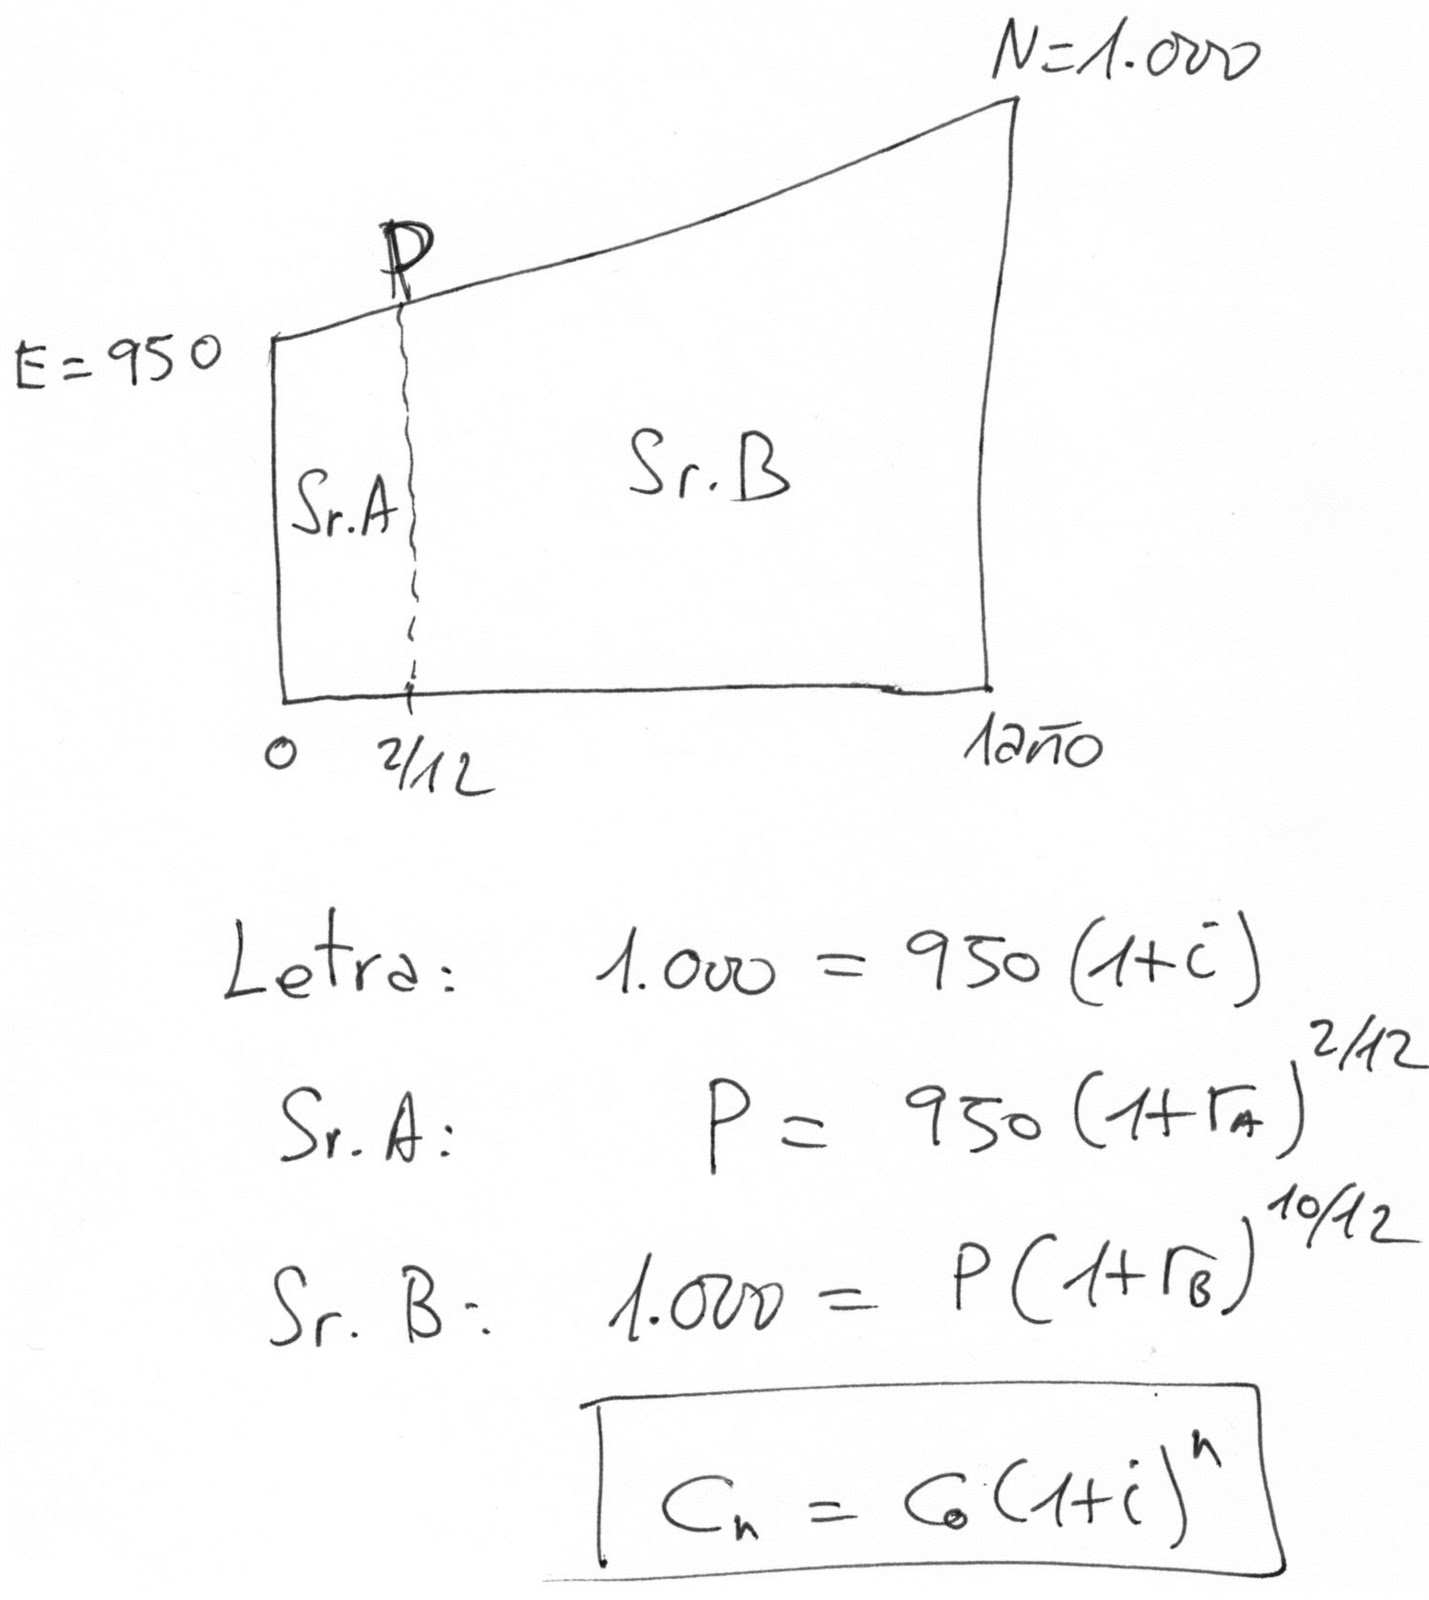 N=1.000
P
E=950
Sr.A
Sr.B
0 2/12 1año
Letra: 1.000 = 950 (1+i)
Sr. A: P = 950 (1+rA)^2/12
Sr. B: 1.000 = P (1+rB)^10/12
Cn = C0 (1+i)^n